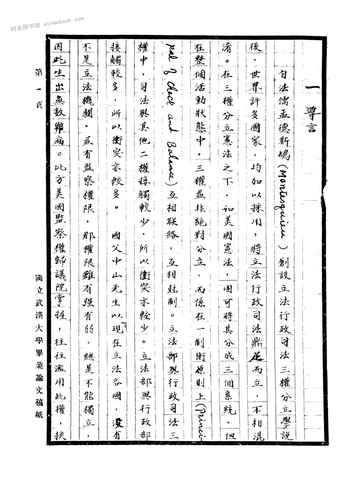 一 導言
自法儒孟德斯鳩(Montesquieu)創設立法行政司法三權分立學說
後,世界許多國家,均加以採用,將立法行政司法鼎足而立,不相混
淆。在三權分立憲法之下,如美國憲法,固可將其分成三個系統,但
在整個活動狀態中,三權並非絕對分立,而係在一制衡原則上(Princi-
pal of Check and Balance)互相聯絡,互相牽制。立法部與行政司法三
權中,司法與其他二權接觸較少,所以衝突亦較少。立法部與行政部
接觸較多,所以衝突亦較多。 國父中山先生以現在立法各國,沒有
不是立法機關,兼有監察權限,那權限雖有強有弱,總是不能獨立,
因此生出無數弊病。比方美國監察權歸議院掌握,往往濫用此權,挾
第 一 頁
國立武漢大學畢業論文稿紙